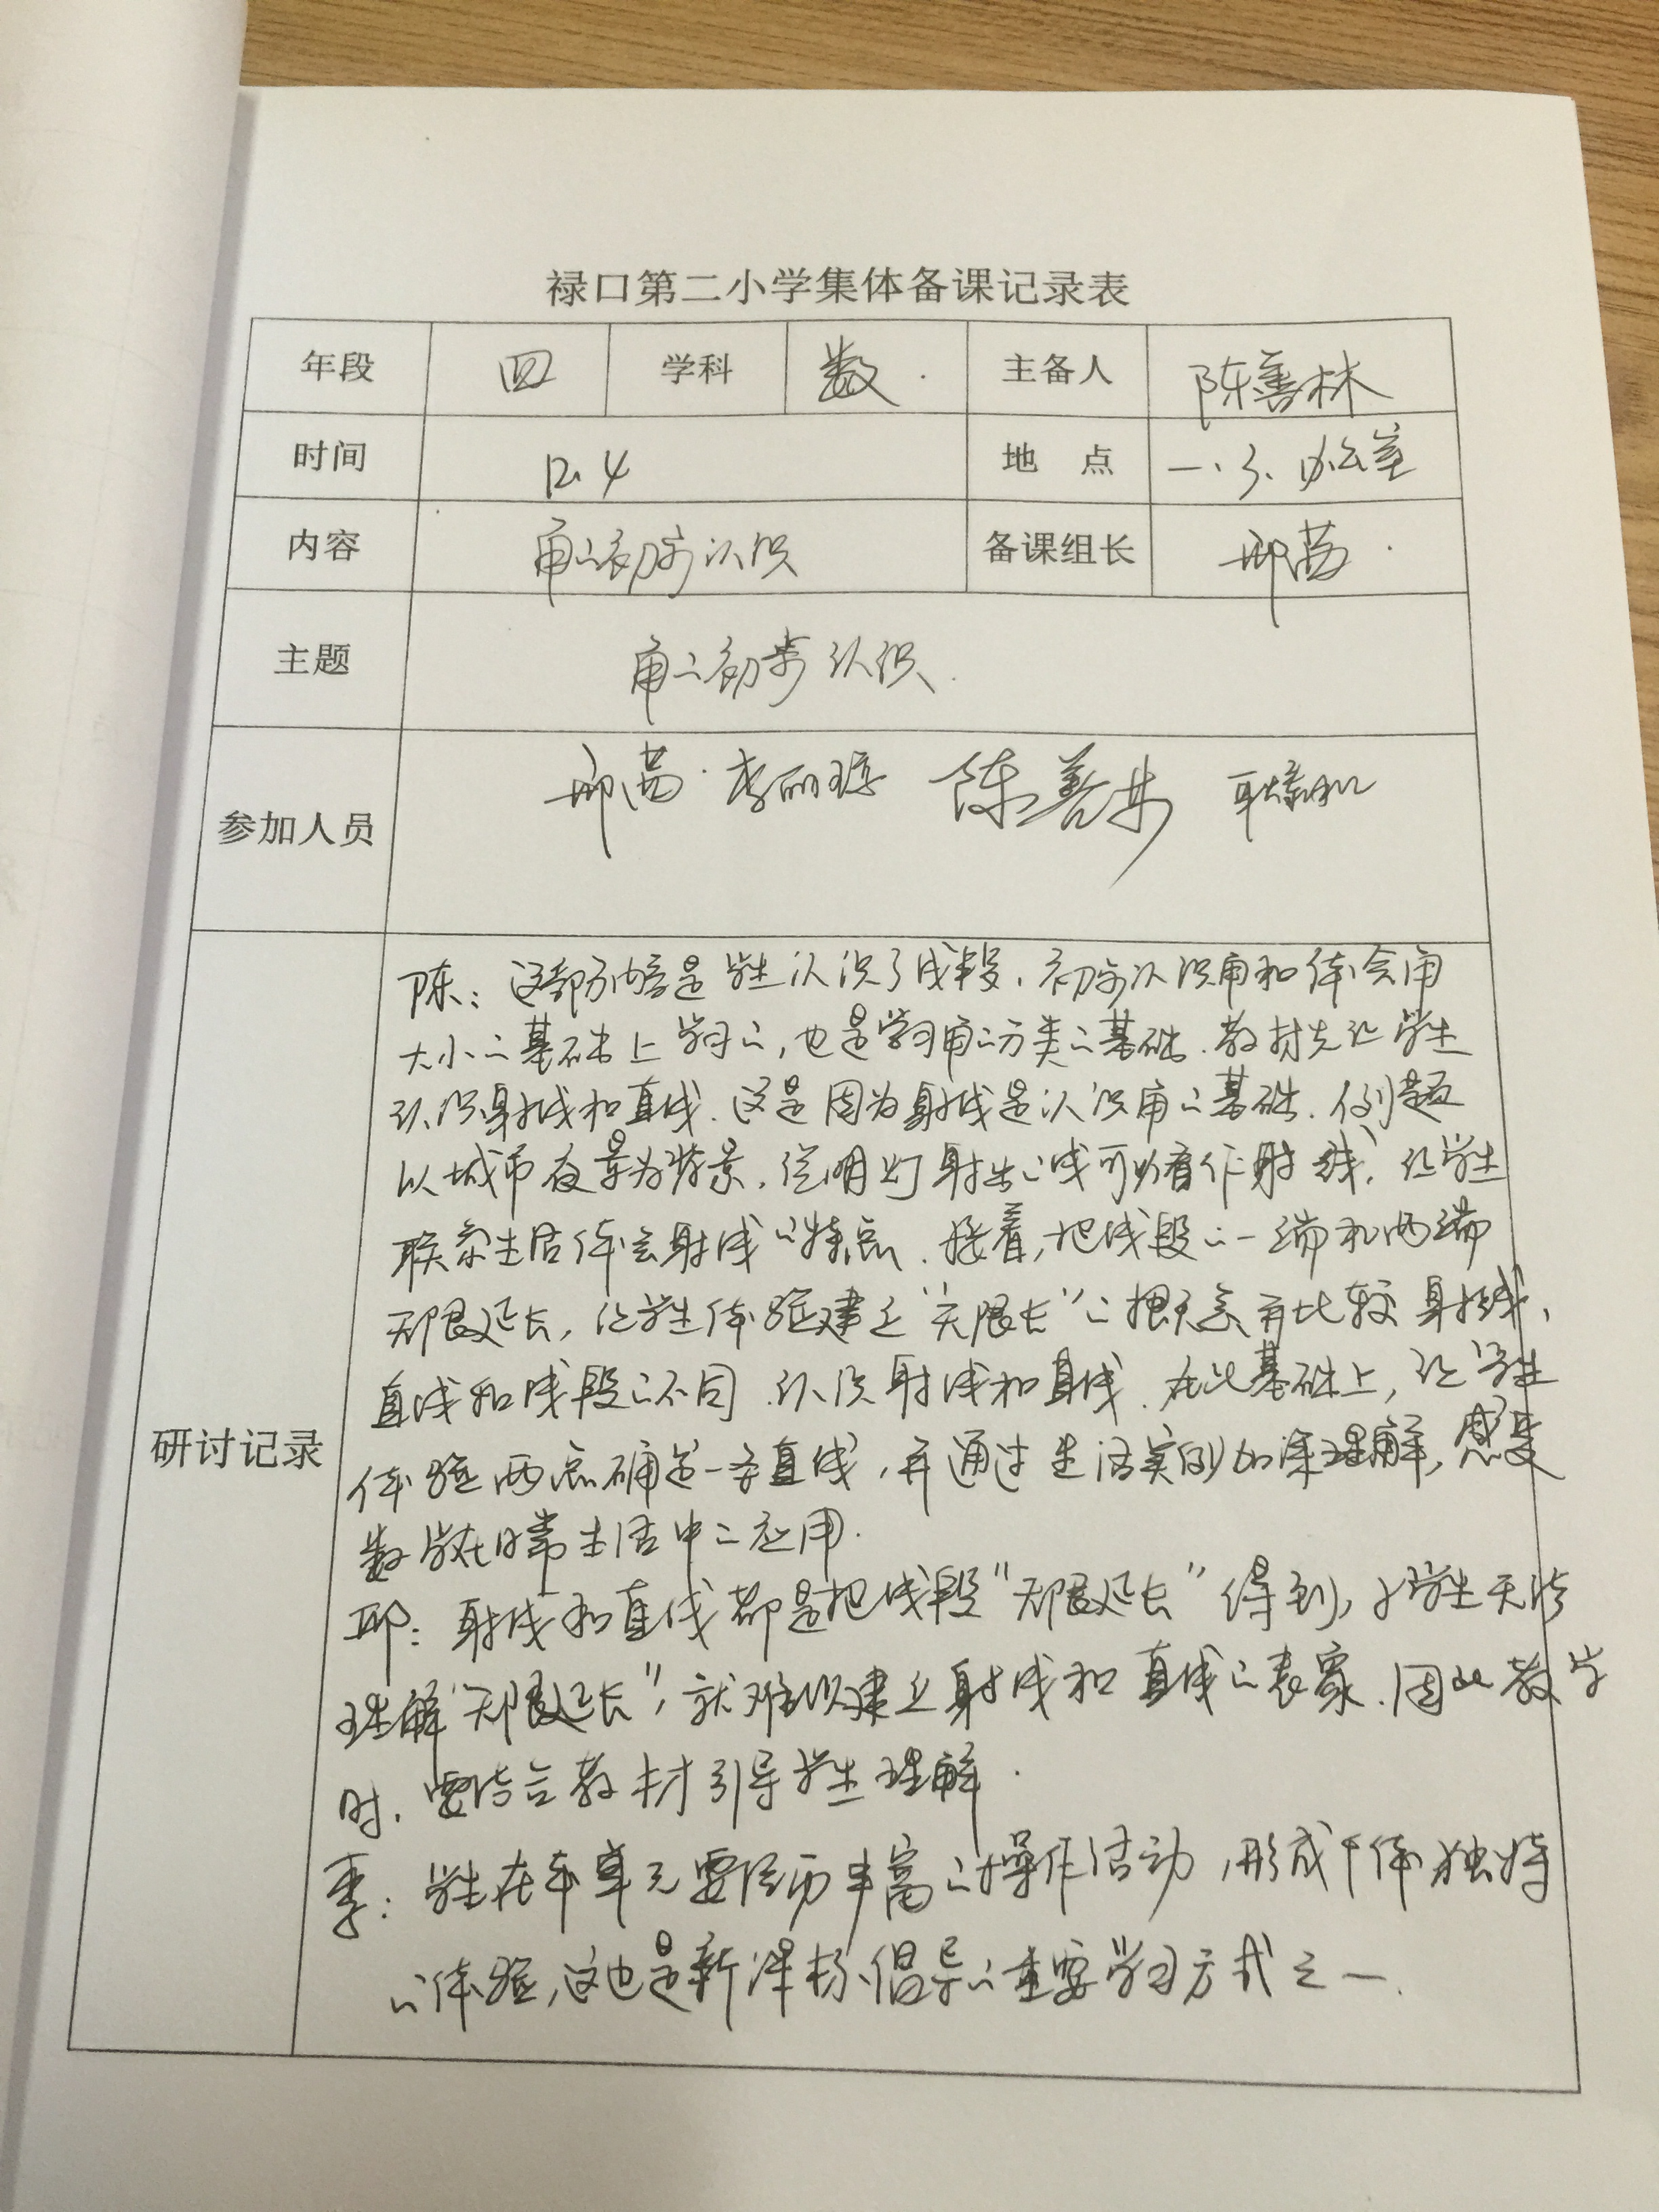 禄口第二小学集体备课记录表
年段 四 学科 数 主备人 陈善林
时间 12.4 地 点 一、3、办公室
内容 角的初步认识 备课组长 邢茜
主题 角的初步认识
参加人员 邢茜 李丽琼 陈善林
研讨记录
陈：这部分内容是学生认识了线段，初步认识角和体会角
大小的基础上学习的，也是学习角的分类的基础．教材先让学生
认识射线和直线．这是因为射线是认识角的基础．例题
以城市夜景为背景，说明灯射出的线可以看作射线，让学生
联系生活体会射线的特点．接着，把线段的一端和两端
无限延长，让学生体验建立“无限长”的概念，再比较射线、
直线和线段的不同．认识射线和直线．在此基础上，让学生
体验两点确定一条直线，并通过生活实例加深理解，感受
数学在日常生活中的应用．
邢：射线和直线都是把线段“无限延长”得到，学生无法
理解“无限延长”，就难以建立射线和直线的表象．因此教学
时，要结合教材引导学生理解．
李：学生在本单元要经历丰富的操作活动，形成个体独特
的体验，这也是新课标倡导的重要学习方式之一．